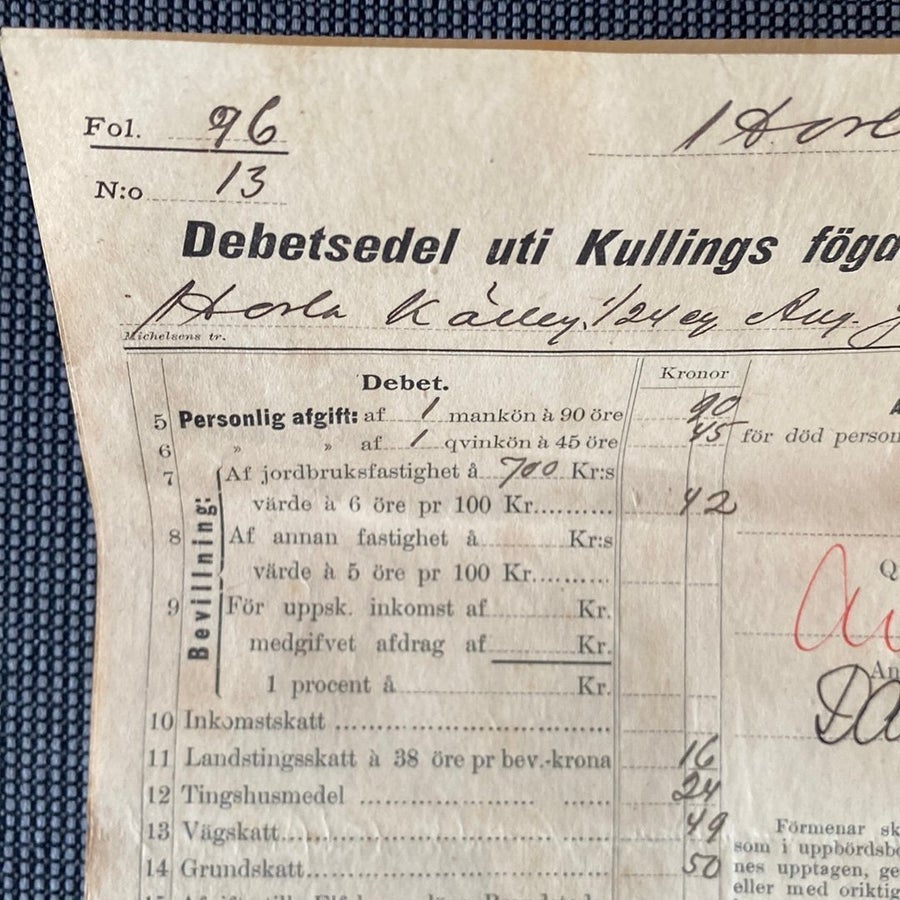 Fol. 96
N:o 13
1 Horl
Debetsedel uti Kullings föga
Horla Kålley 1/24 eg Aug.
Michelsens tr.
Debet.
Kronor
5 Personlig afgift: af 1 mankön à 90 öre 90
6 » » af 1 qvinkön à 45 öre 45
för död person
Bevillning:
7 Af jordbruksfastighet å 700 Kr:s
värde à 6 öre pr 100 Kr.......... 42
8 Af annan fastighet å Kr:s
värde à 5 öre pr 100 Kr..........
9 För uppsk. inkomst af Kr.
medgifvet afdrag af Kr.
1 procent å Kr.
10 Inkomstskatt
11 Landstingsskatt à 38 öre pr bev.-krona 16
12 Tingshusmedel 24
13 Vägskatt 49
14 Grundskatt 50
Q
An
Förmenar sk
som i uppbördsbo
nes upptagen, ge
eller med oriktig